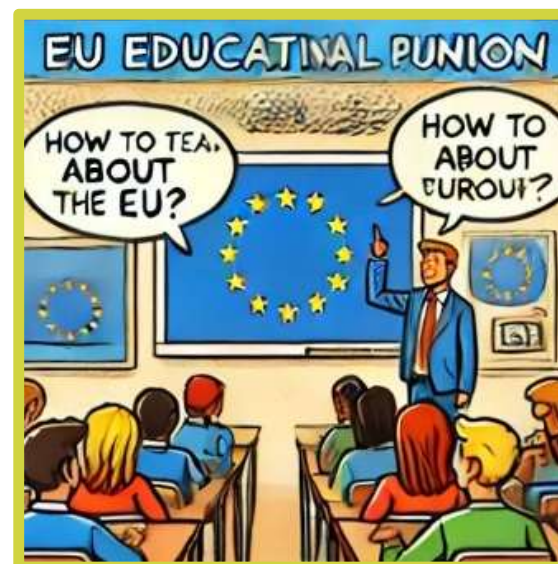 EU EDUCATINAL PUNION
HOW TO TEA.
ABOUT
THE EU?
HOW TO
ABOUT
EUROUI?